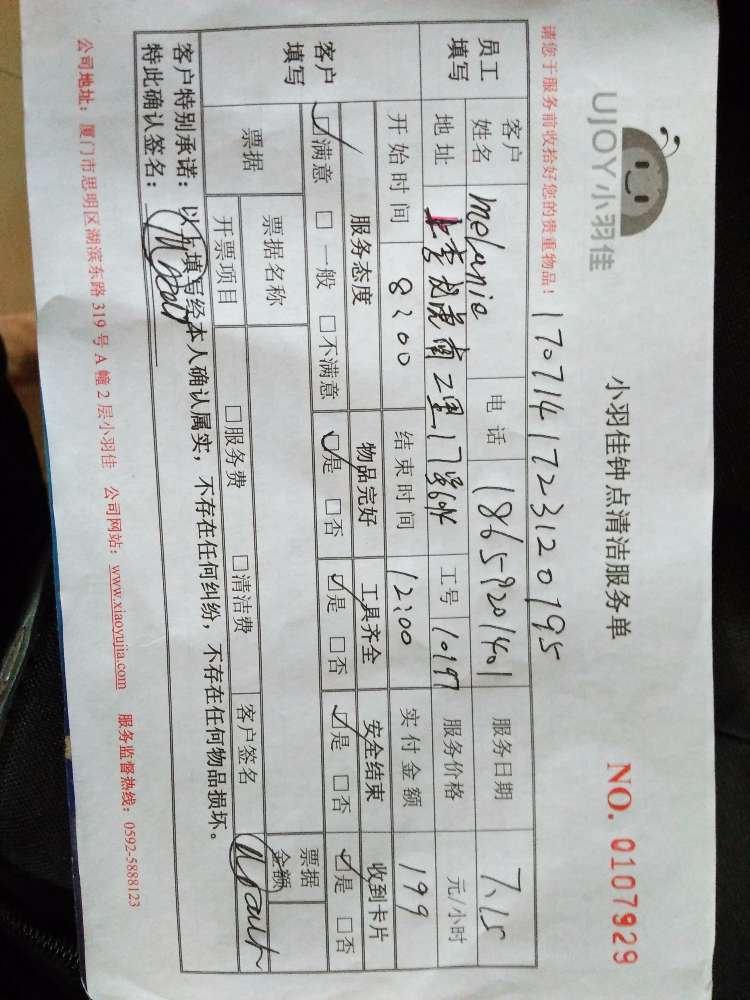 UJOY小羽佳
小羽佳钟点清洁服务单
NO. 0107929
请您于服务前收拾好您的贵重物品！
1707141723120195
员工填写
客户姓名 melanie 电话 18659201401 服务日期 7.15
地址 17号604 工号 10197 服务价格 元/小时
开始时间 8:00 结束时间 12:00 实付金额 199
客户填写
服务态度 物品完好 工具齐全 安全结束 收到卡片
☑满意 □一般 □不满意 ☑是 □否 ☑是 □否 ☑是 □否 ☑是 □否
票据 票据名称 票据金额
开票项目 □服务费 □清洁费 客户签名
客户特别承诺：以上填写经本人确认属实，不存在任何纠纷，不存在任何物品损坏。
特此确认签名：
公司地址：厦门市思明区湖滨东路 319 号 A 幢 2 层小羽佳 公司网站：www.xiaoyujia.com 服务监督热线：0592-5888123